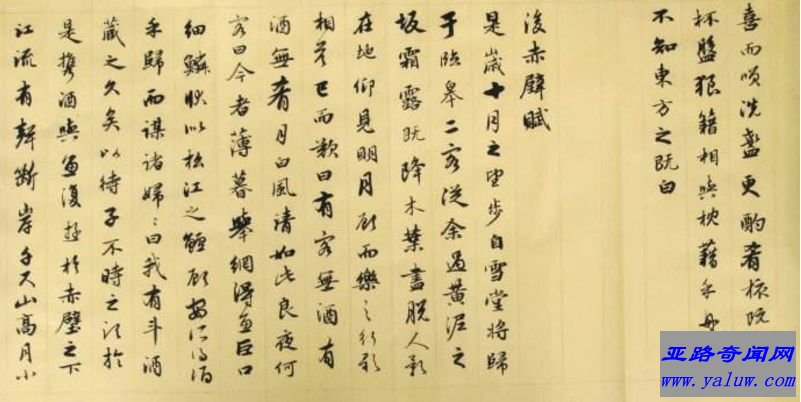 喜而咲洗盞更酌肴核既
杯盤狼籍相與枕藉乎舟
不知東方之既白
後赤壁賦
是歲十月之望步自雪堂將歸
于臨皋二客從余過黃泥之
坂霜露既降木葉盡脫人影
在地仰見明月顧而樂之行歌
相答已而歎曰有客無酒有
酒無肴月白風清如此良夜何
客曰今者薄暮舉網得魚巨口
細鱗狀似松江之鱸顧安所得酒
乎歸而謀諸婦〻曰我有斗酒
藏之久矣以待子不時之須於
是攜酒與魚復遊於赤壁之下
江流有聲斷岸千尺山高月小
亚路奇闻网
www.yaluw.com